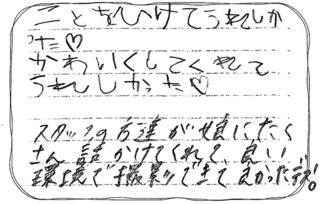 ことをいけてうれしか
った♡
かわいくしてくれて
うれしかった♡
スタッフの方達が娘にたく
さん話かけてくれて、良い
環境で撮影できてよかったです!